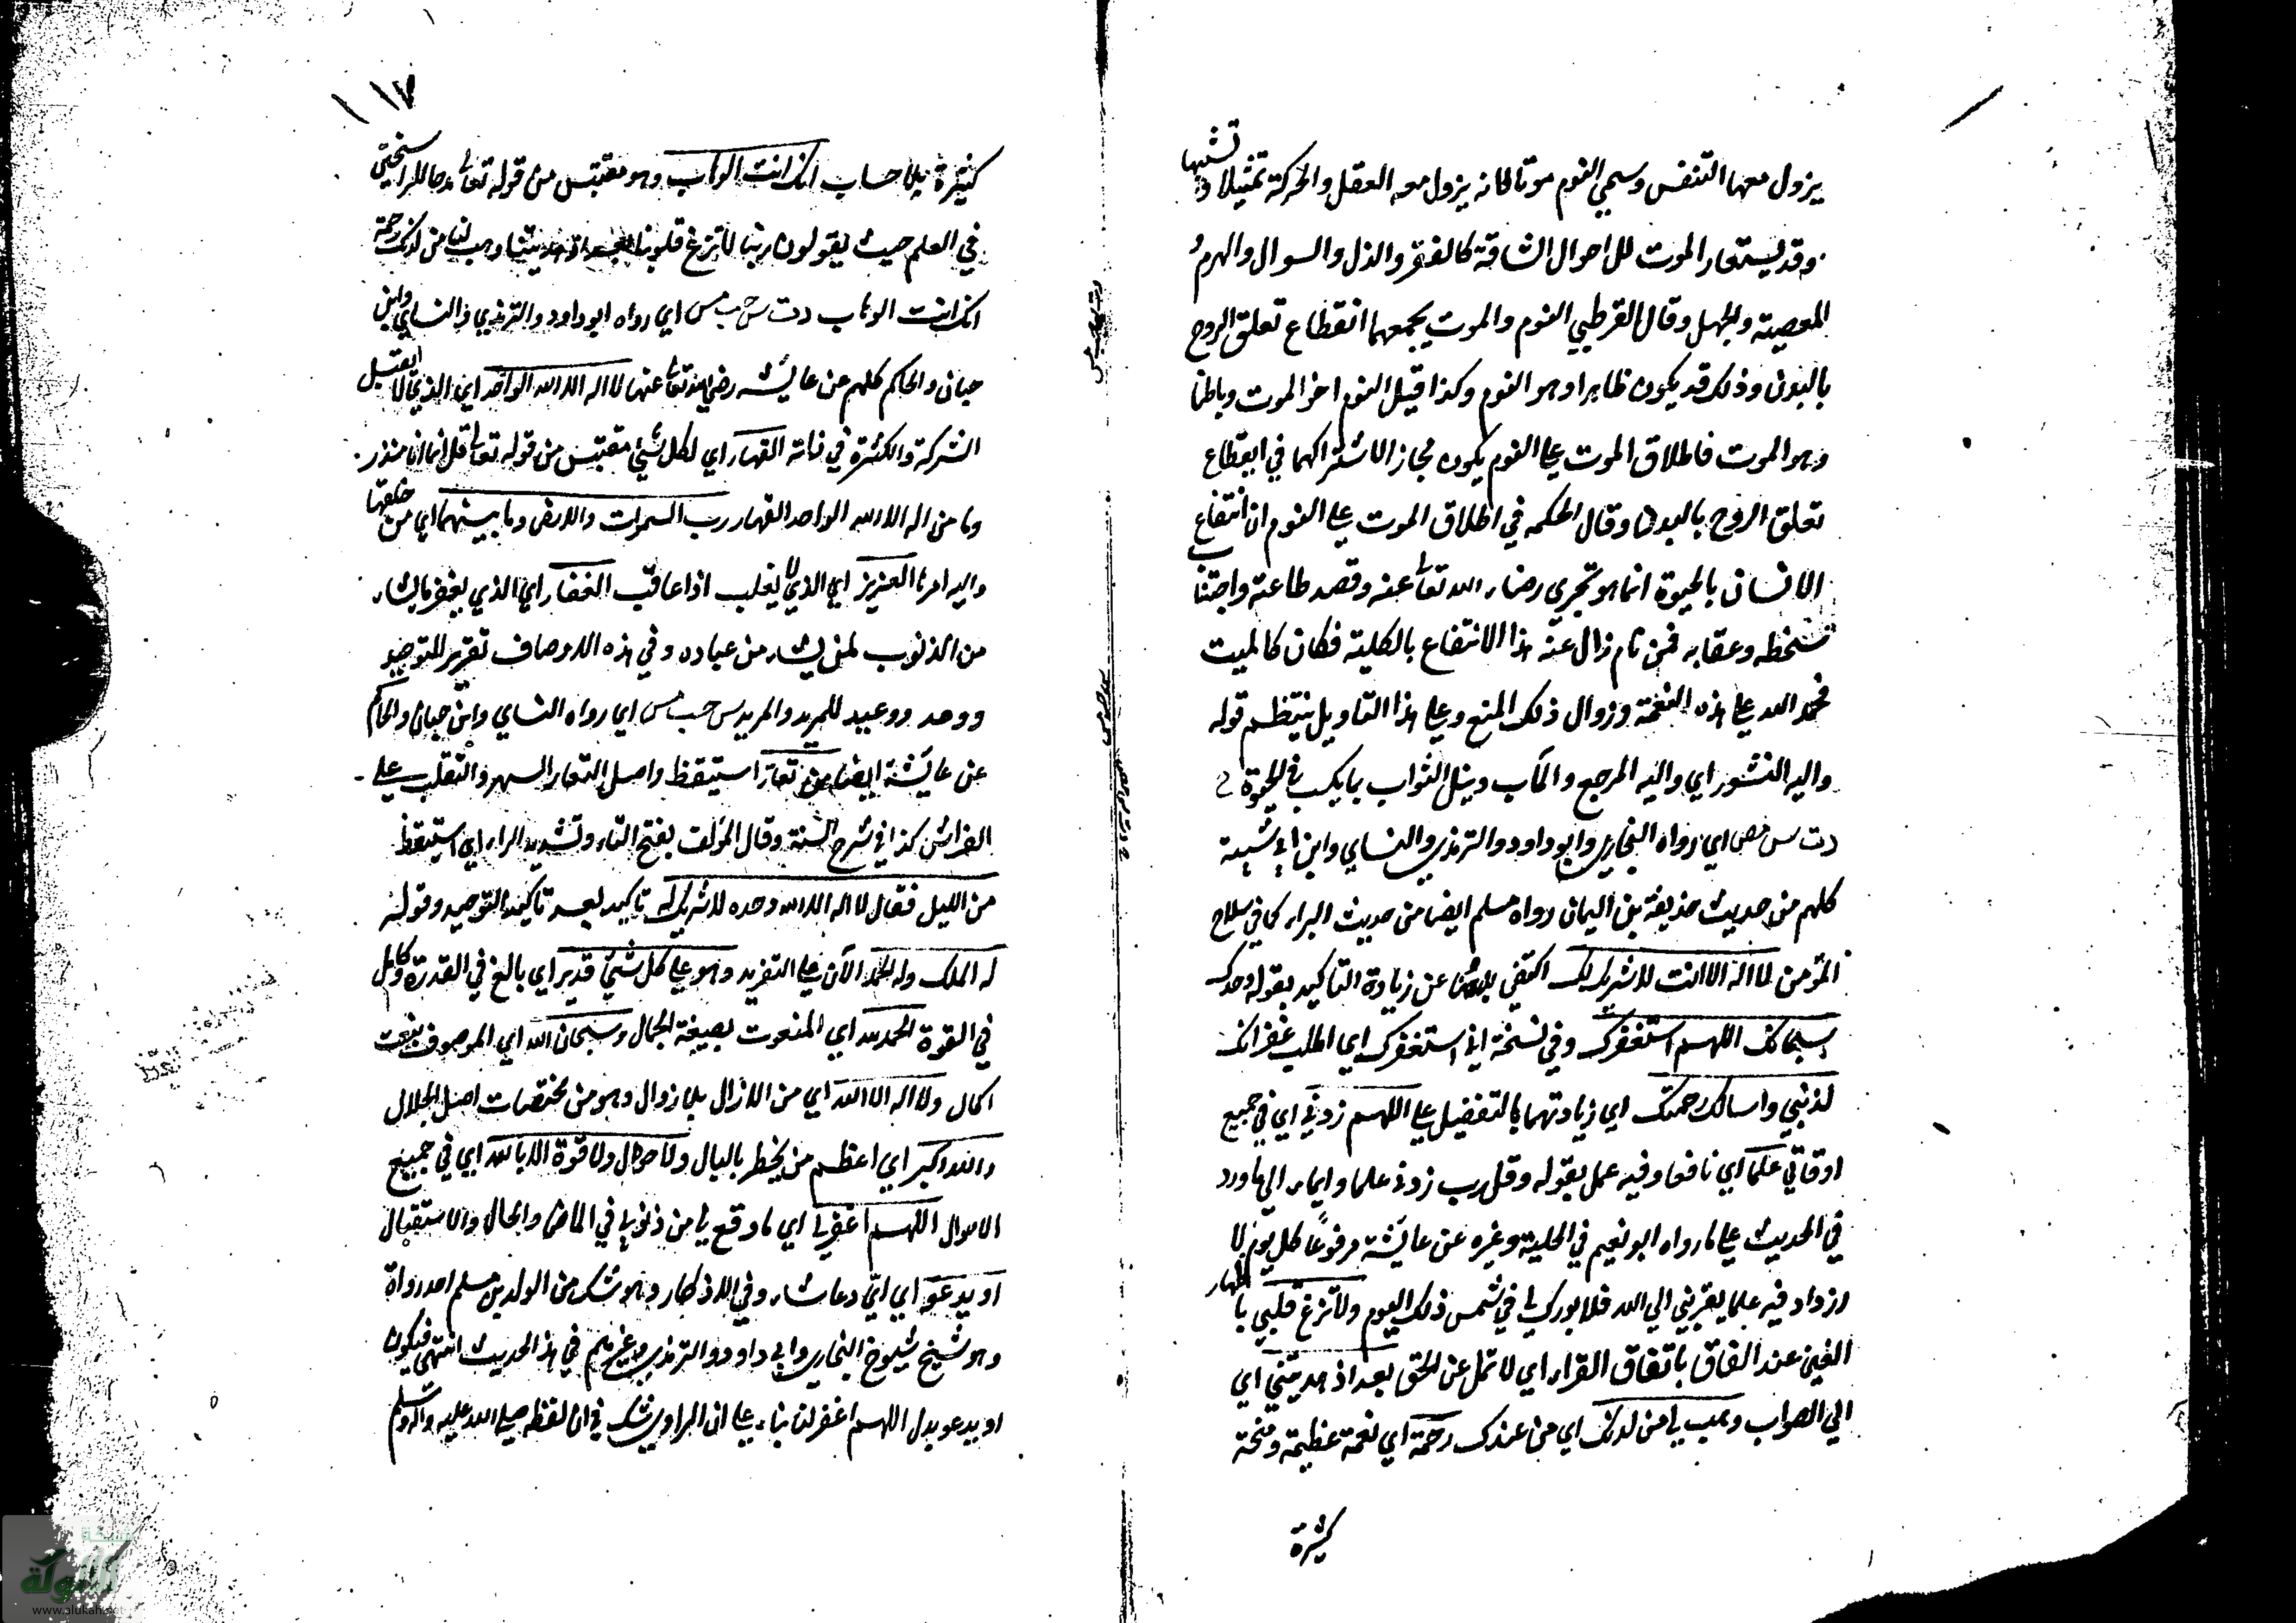 يزول معها التنفس وسمي النوم موتا لانه يزول معه العقل والحركة تمثيلا وتشبيها
وقد يستعار الموت للاحوال الشاقة كالفقر والذل والسوال والهرم
المعصية والجهل وقال القرطبي النوم والموت يجمعهما انقطاع تعلق الروح
بالبدن وذلك قد يكون ظاهرا وهو النوم وكذا قيل النوم اخو الموت وباطنا
وهو الموت فاطلاق الموت على النوم يكون مجازا لاشتراكهما في انقطاع
تعلق الروح بالبدن وقال الحكمه في اطلاق الموت على النوم ان انتفاع
الانسان بالحيوة انما هو تحري رضاء الله تعالى عنه وقصد طاعته واجتناب
سخطه وعقابه فمن نام زال عنه هذا الانتفاع بالكلية فكان كالميت
فحمد الله على هذه النعمة وزوال ذلك المنع وعلى هذا التاويل ينتظم قوله
واليه النشور اي واليه المرجع والمآب ونيل الثواب بما يكسب في الحيوة خ
دت س مص اي رواه البخاري وابو داود والترمذي والنساي وابن ابي شيبة
كلهم من حديث حذيفة بن اليمان رواه مسلم ايضا من حديث البراء كما في سلاح
المؤمن لا اله الا انت لا شريك لك اكتفى عن زيادة التاكيد بقوله وحدك
سبحانك اللهم استغفرك وفي نسخة اني استغفرك اي اطلب غفرانك
لذنبي واسالك رحمتك اي زيادتهما بالتفضيل علي اللهم زدني اي في جميع
اوقاتي علما اي نافعا وفيه عمل بقوله وقل رب زدني علما وايماء الى ما ورد
في الحديث على ما رواه ابو نعيم في الحلية وغيره عن عايشة مرفوعا كل يوم لا
ازداد فيه علما يقربني الى الله فلا بورك لي في شمس ذلك اليوم ولا تزغ قلبي باظهار
الغين عند القاف باتفاق القراء اي لا تمل عن الحق بعد اذ هديتني اي
الى الصواب وهب لي من لدنك اي من عندك رحمة اي نعمة عظيمة ومنحة
كثيرة
١١٧
كثيرة بلا حساب انك انت الوهاب وهو مقتبس من قوله تعالى مدحا للراسخين
في العلم حيث يقولون ربنا لا تزغ قلوبنا بعد اذ هديتنا وهب لنا من لدنك رحمة
انك انت الوهاب دت س حب مس اي رواه ابو داود والترمذي والنساي وابن
حبان والحاكم كلهم عن عايشه رضي الله تعالى عنها لا اله الا الله الواحد اي الذي لا يقبل
الشركة والكثرة في ذاته القهار اي لكل شيئ مقتبس من قوله تعالى قل انما انا منذر
وما من اله الا الله الواحد القهار رب السموات والارض وما بينهما اي من خلقها
واليه امرها العزيز اي الذي لا يغلب اذا عاقب الغفار اي الذي يغفر ما يشاء
من الذنوب لمن يشاء من عباده وفي هذه الاوصاف تقرير للتوحيد
ووعد ووعيد للمريد والمريد س حب مس اي رواه النساي وابن حبان والحاكم
عن عايشة ايضا من تعار استيقظ واصل التعار السهر والتقلب على
الفراش كذا في شرح السنة وقال المؤلف بفتح التاء وتشديد الراء اي استيقظ
من الليل فقال لا اله الا الله وحده لا شريك له تاكيد بعد تاكيد التوحيد وقوله
له الملك وله الحمد على التفريد وهو على كل شيئ قدير اي بالغ في القدرة وكامل
في القوة الحمد لله اي المنعوت بصيغة الجمال وسبحان الله اي الموصوف بنعت
اكمال ولا اله الا الله اي من الازل بلا زوال وهو من مختصات اصل الجلال
والله اكبر اي اعظم من يخطر بالبال ولا حول ولا قوة الا بالله اي في جميع
الاحوال اللهم اغفر لي اي ما وقع لي من ذنوبي في الماضي والحال والاستقبال
او يدعو اي اي دعا شاء وفي الاذكار وهو شك من الوليد بن مسلم احد رواة
وهو شيخ شيوخ البخاري وابي داود والترمذي وغيرهم في هذا الحديث انتهى فيكون
او يدعو بدل اللهم اغفر لنا بناء على ان الراوي شك في ان لفظه صلى الله عليه واله وسلم
www.alukah.net